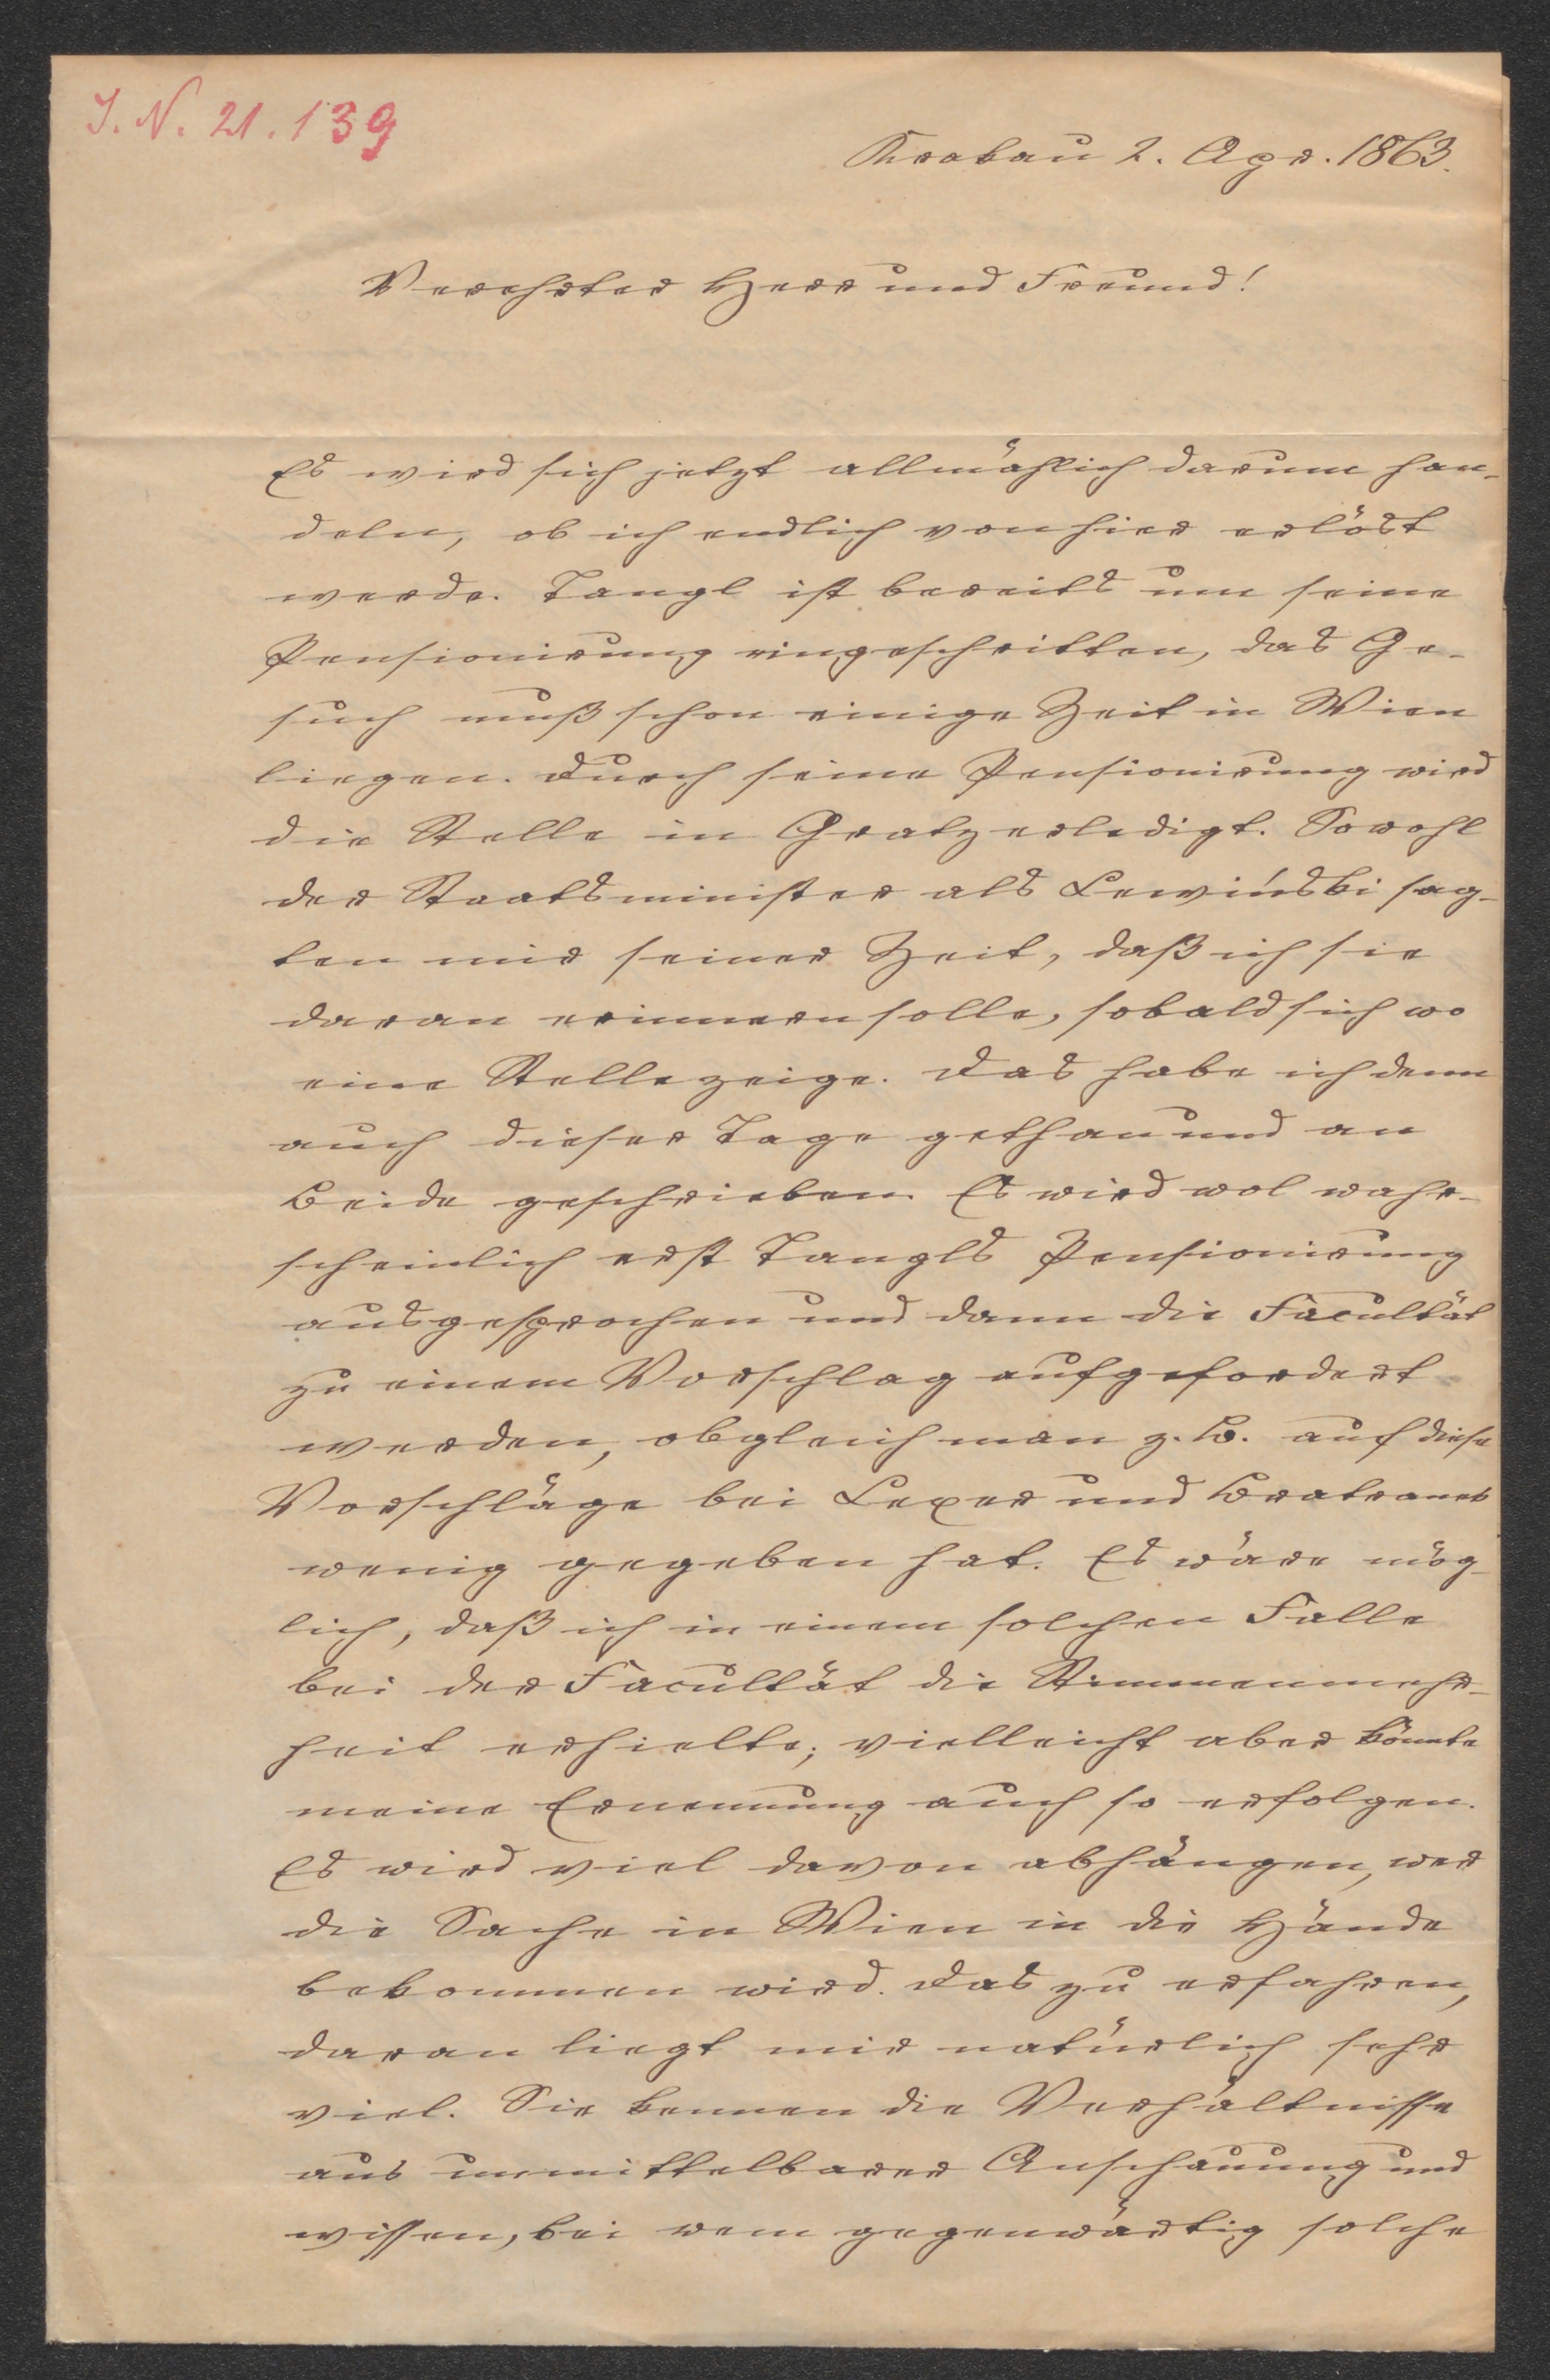 J. N. 21.139
Krakau 2. Apr. 1863.
Verehrter Herr und Freund!
Es wird sich jetzt allmählich darum han-
deln, ob ich endlich von hier erlöst
werde. Tangl ist bereits um seine
Pensionirung eingeschritten, das Ge-
such muß schon einige Zeit in Wien
liegen. Durch seine Pensionirung wird
die Stelle in Gratz erledigt. Sowohl
der Staatsminister als Lewiński sag-
ten mir seiner Zeit, daß ich sie
daran erinnern solle, sobald sich wo
eine Stelle zeige. Das habe ich denn
auch dieser Tage gethan und an
Beide geschrieben. Es wird wol wahr-
scheinlich erst Tangls Pensionirung
ausgesprochen und dann die Facultät
zu einem Vorschlag aufgefordert
werden, obgleich man z. B. auf diese
Vorschläge bei Lexer und Bratranek
wenig gegeben hat. Es wäre mög-
lich, daß ich in einem solchen Falle
bei der Facultät die Stimmenmehr-
heit erhielte; vielleicht aber könnte
meine Ernennung auch so erfolgen.
Es wird viel davon abhängen, wer
die Sache in Wien in die Hände
bekommen wird. Das zu erfahren,
daran liegt mir natürlich sehr
viel. Sie kennen die Verhältnisse
aus unmittelbarer Anschauung und
wissen, bei wem gegenwärtig solche